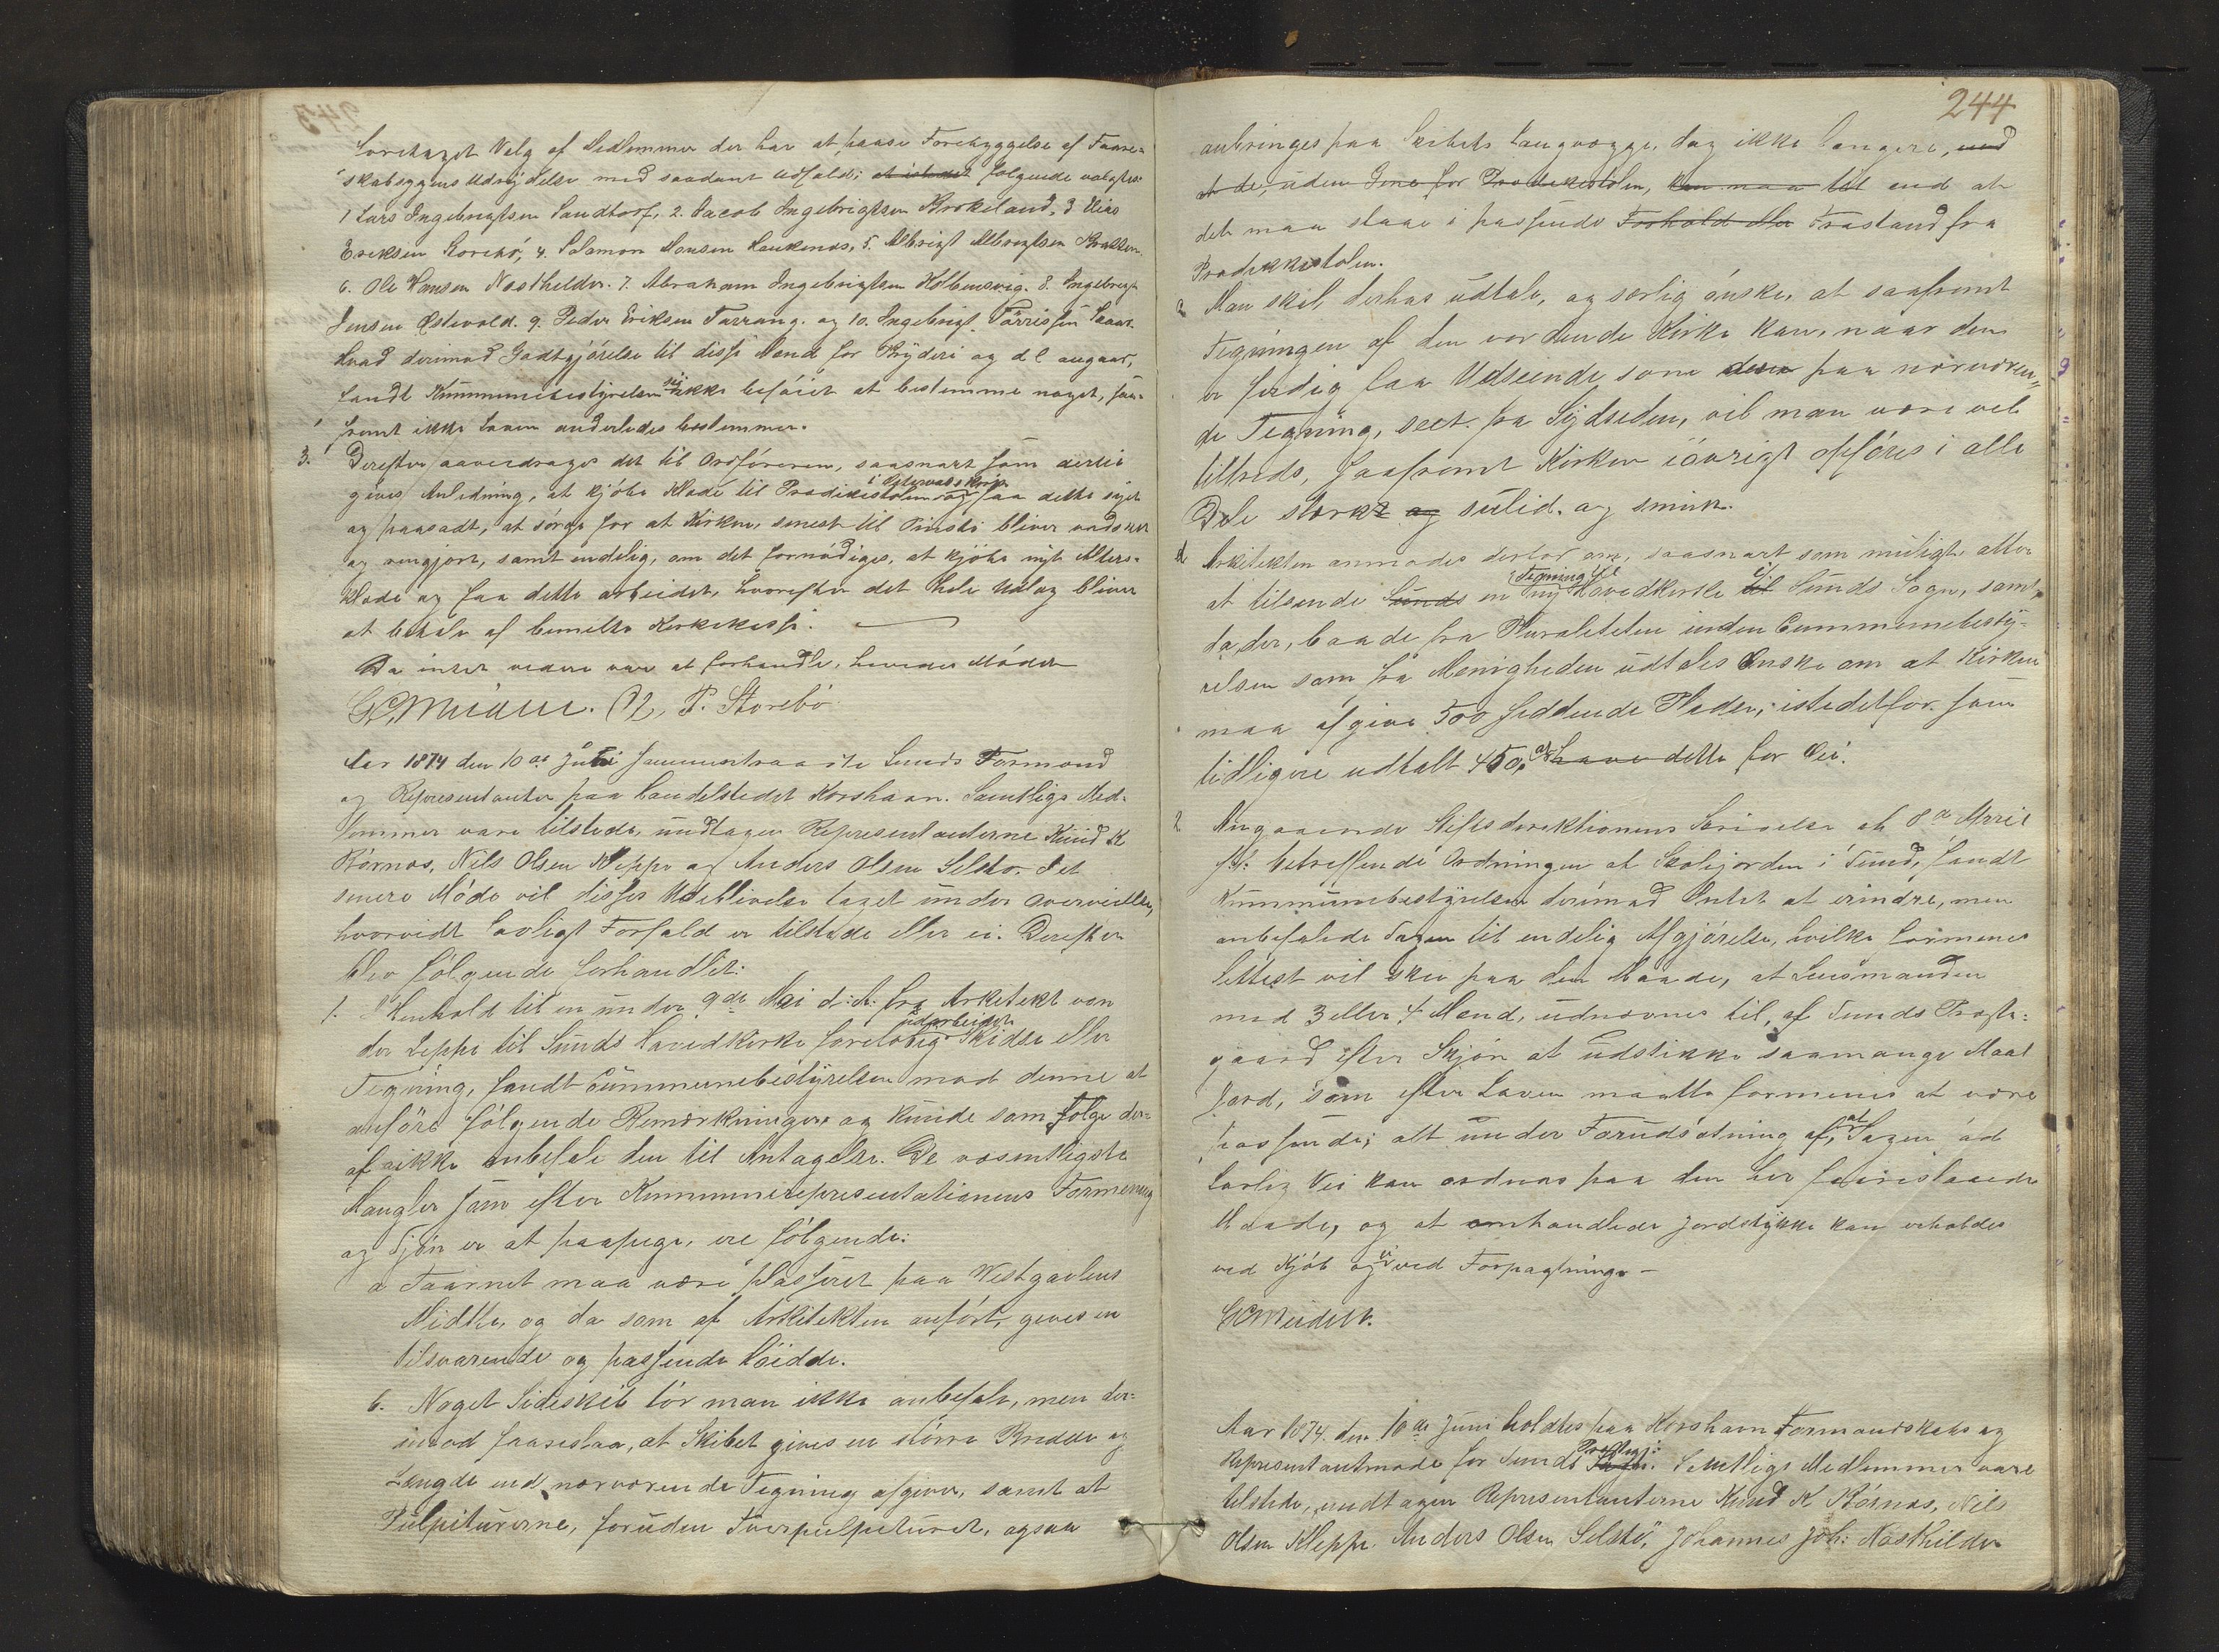 foretaget Valg af Medlemmer der har at paase Forebyggelse af Faare-
skabsygens Udrydelse med saadant Udfald: at istedet følgende valgtes:
1 Lars Ingebrigtsen Sandtorf, 2. Jacob Ingebrigtsen Krokeland, 3 Elias
Eriksen Storebö, 4. Salamon Monsen Haukenæs, 5. Albrigt Albrigtsen Bratten
6. Ole Hansen Næsthelder. 7. Abraham Ingebrigtsen Kolbensvig. 8. Ingebrigt
Jensen Østevold. 9. Peder Eriksen Tarrang. og 10. Ingebrigt Törrissen
Hvad derimod Godtgjörelse til disse Mænd for Bryderi og dl angaar,
fandt Kummunebestyrelsen sig ikke beföiet at bestemme noget, saa-
fremt ikke Loven anderledes bestemmer.
3. Derefter overdroges det til Ordföreren, saasnart som dertil
gives Anledning, at kjöbe Klæde til Prædikestolen i Østervolds Kirke og faa dette syet
og paasadt, at sörge for at Kirken, senest til Pintse bliver vadsket
og rengjort, samt endelig, om det fornödiges, at kjöbe nyt Alters-
klæde og faa dette arbeidet, hvorefter det hele Udlæg bliver
at betale af bemelte Kirkekasse.
Da intet videre var at forhandle, hævedes Mödet
O. P. Storebö
Aar 1874 den 10de Juni sammentraadte Sunds Formænd
og Representanter paa Handelstedet Korshavn. Samtlige Med-
lemmer vare tilstede, undtagen Representanterne Knud K
Börnæs, Nils Olsen Kleppe og Anders Olsen Selstö. I et
senere Möde vil disses Udeblivelse taget under overveielse,
hvorvidt Lovligt Forfald er tilstede eller ei. Derefter
blev fölgende forhandlet:
1. I Henhold til en under 9de Mai d: A: fra Arkitekt von
der Lippe til Sunds Hovedkirke forelöbig udarbeidet Skidse eller
Tegning, fandt Cummunebestyrelsen mod denne at
anföre fölgende Bemærkninger, og kunde som Fölge der-
af ikke anbefale den til Antagelse. De væsentligste
Mangler som efter Kummunerepresentationens Formening
og Sjön er at paapege, ere fölgende:
a Taarnet maa være plasseret paa Vestgavlens
Midtte, og da som af Arkitekten anfört, gives en
tilsvarende og passende Höidde.
b. Noget Sideskib tör man ikke anbefale, men der-
imod foareslaa, at Skibet gives en större Bredde og
Længde end nærværende Tegning afgiver, samt at
Pulpiturerne, foruden Tverpulpituret, ogsaa
244
anbringes paa Skibets Langvægge, dog ikke længere, end
at de, uden Gene for Prædikestolen, kan naa til end at
det maa staae i passende Forhold eller Frastand fra
Prædikkestolen.
c Man skal derhos udtale, og særlig önske, at saafremt
Tegningen af den vordende Kirke kan, naar den
er færdig faa Udseende som den paa nærværen-
de Tegning, seet fra Sydsiden, vil man være vel
tilfreds, saafremt Kirken iövrigt opföres i alle
Dele stærkt og sulid. og smuk.
d Arkitekten anmodes derfor om, saasnart som muligt atter
at tilsende Sunds en Tegning til ny Hovedkirke i til Sunds Sogn, samt,
da der, baade fra Pluraliteten inden Cummunebesty-
relsen som fra Menigheden udtales Önske om at Kirken
maa afgive 500 siddende Pladser, istedetfor som
tidligere udtalt 450, at have dette for Öie.
2 Angaaende Stiftsdirektionens Skrivelse af 8de April
sl: betreffende Ordningen af Skolejorden i Sund, fandt
Kummunebestyrelsen derimod Intet at erindre, men
anbefalede Sagen til endelig Afgjörelse, hvilke formenes
lettest vil skee paa den Maade, at Lensmanden
med 3 eller 4 Mænd, udnævnes til, af Sunds Præste-
gaard efter Skjön at udstikke saamange Maal
Jord, som efter Loven maatte formenes at være
passende; alt under Forudsætning af, at Sagen ad
lovlig Vei kan ordnes paa den her foareslaaede
Maade, og at omhandlede Jordstykke kan erholdes
ved Kjöb og ei ved Forpagtning. –
Aar 1874. den 10de Juni holdtes paa Korshavn Formandskabs og
Representantmöde for Sunds Præstegj: Samtlige Medlemmer vare
tilstede, undtagen Representanterne Knud K Börnæs, Nils
Olsen Kleppe, Anders Olsen Selstö, Johannes Joh: Næsthilder